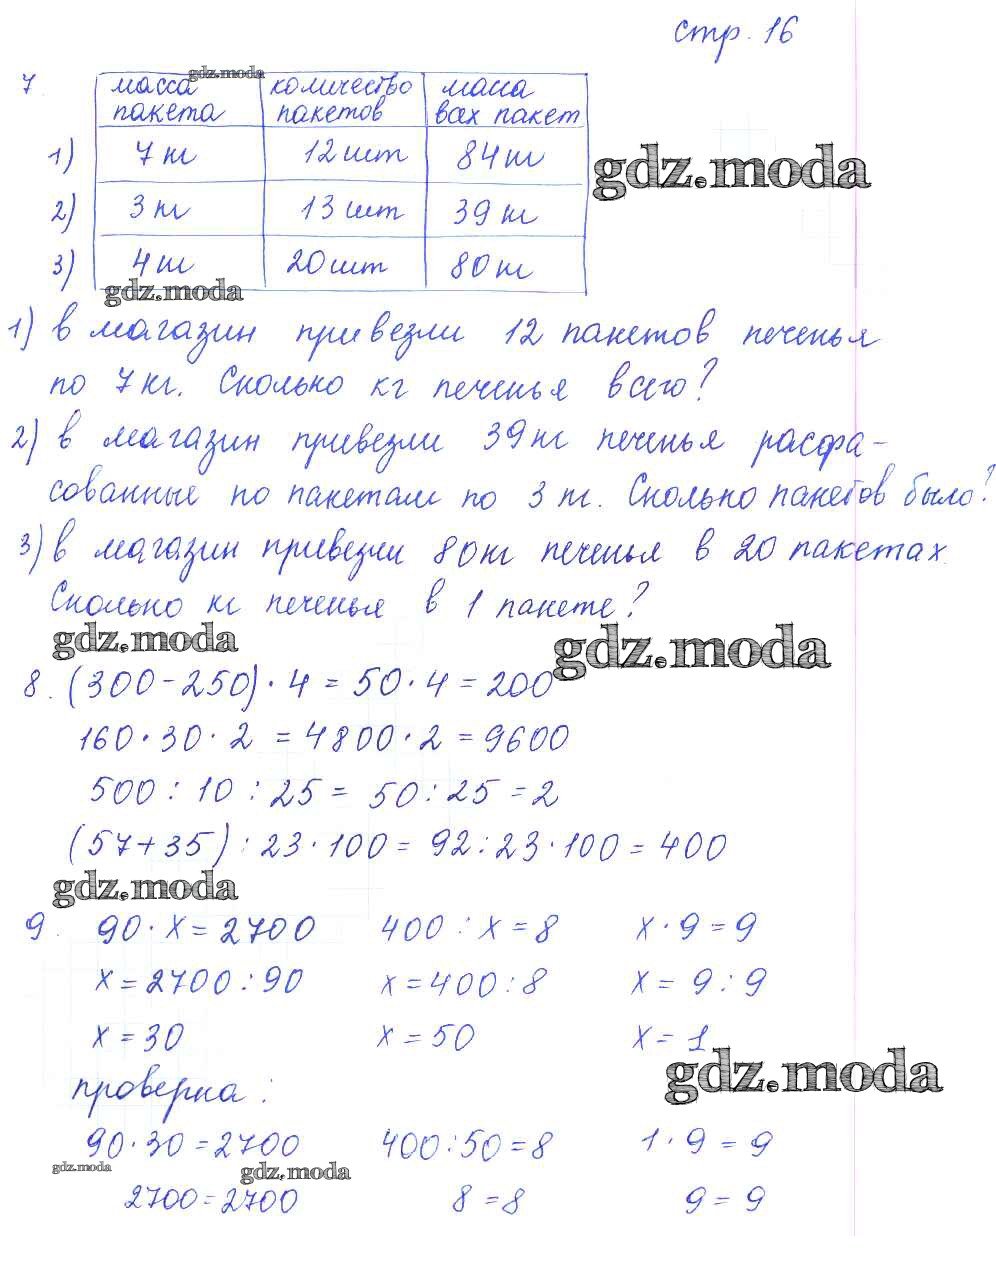 стр. 16
7.
масса пакета количество пакетов масса всех пакет
1) 7 кг 12 шт 84 кг
2) 3 кг 13 шт 39 кг
3) 4 кг 20 шт 80 кг
1) в магазин привезли 12 пакетов печенья
по 7 кг. Сколько кг печенья всего?
2) в магазин привезли 39 кг печенья расфа-
сованные по пакетам по 3 кг. Сколько пакетов было?
3) в магазин привезли 80 кг печенья в 20 пакетах.
Сколько кг печенья в 1 пакете?
8. (300 - 250) · 4 = 50 · 4 = 200
160 · 30 · 2 = 4800 · 2 = 9600
500 : 10 : 25 = 50 : 25 = 2
(57 + 35) : 23 · 100 = 92 : 23 · 100 = 400
9. 90 · x = 2700 400 : x = 8 x · 9 = 9
x = 2700 : 90 x = 400 : 8 x = 9 : 9
x = 30 x = 50 x = 1
проверка:
90 · 30 = 2700 400 : 50 = 8 1 · 9 = 9
2700 = 2700 8 = 8 9 = 9
gdz.moda
gdz.moda
gdz.moda
gdz.moda
gdz.moda
gdz.moda
gdz.moda
gdz.moda
gdz.moda